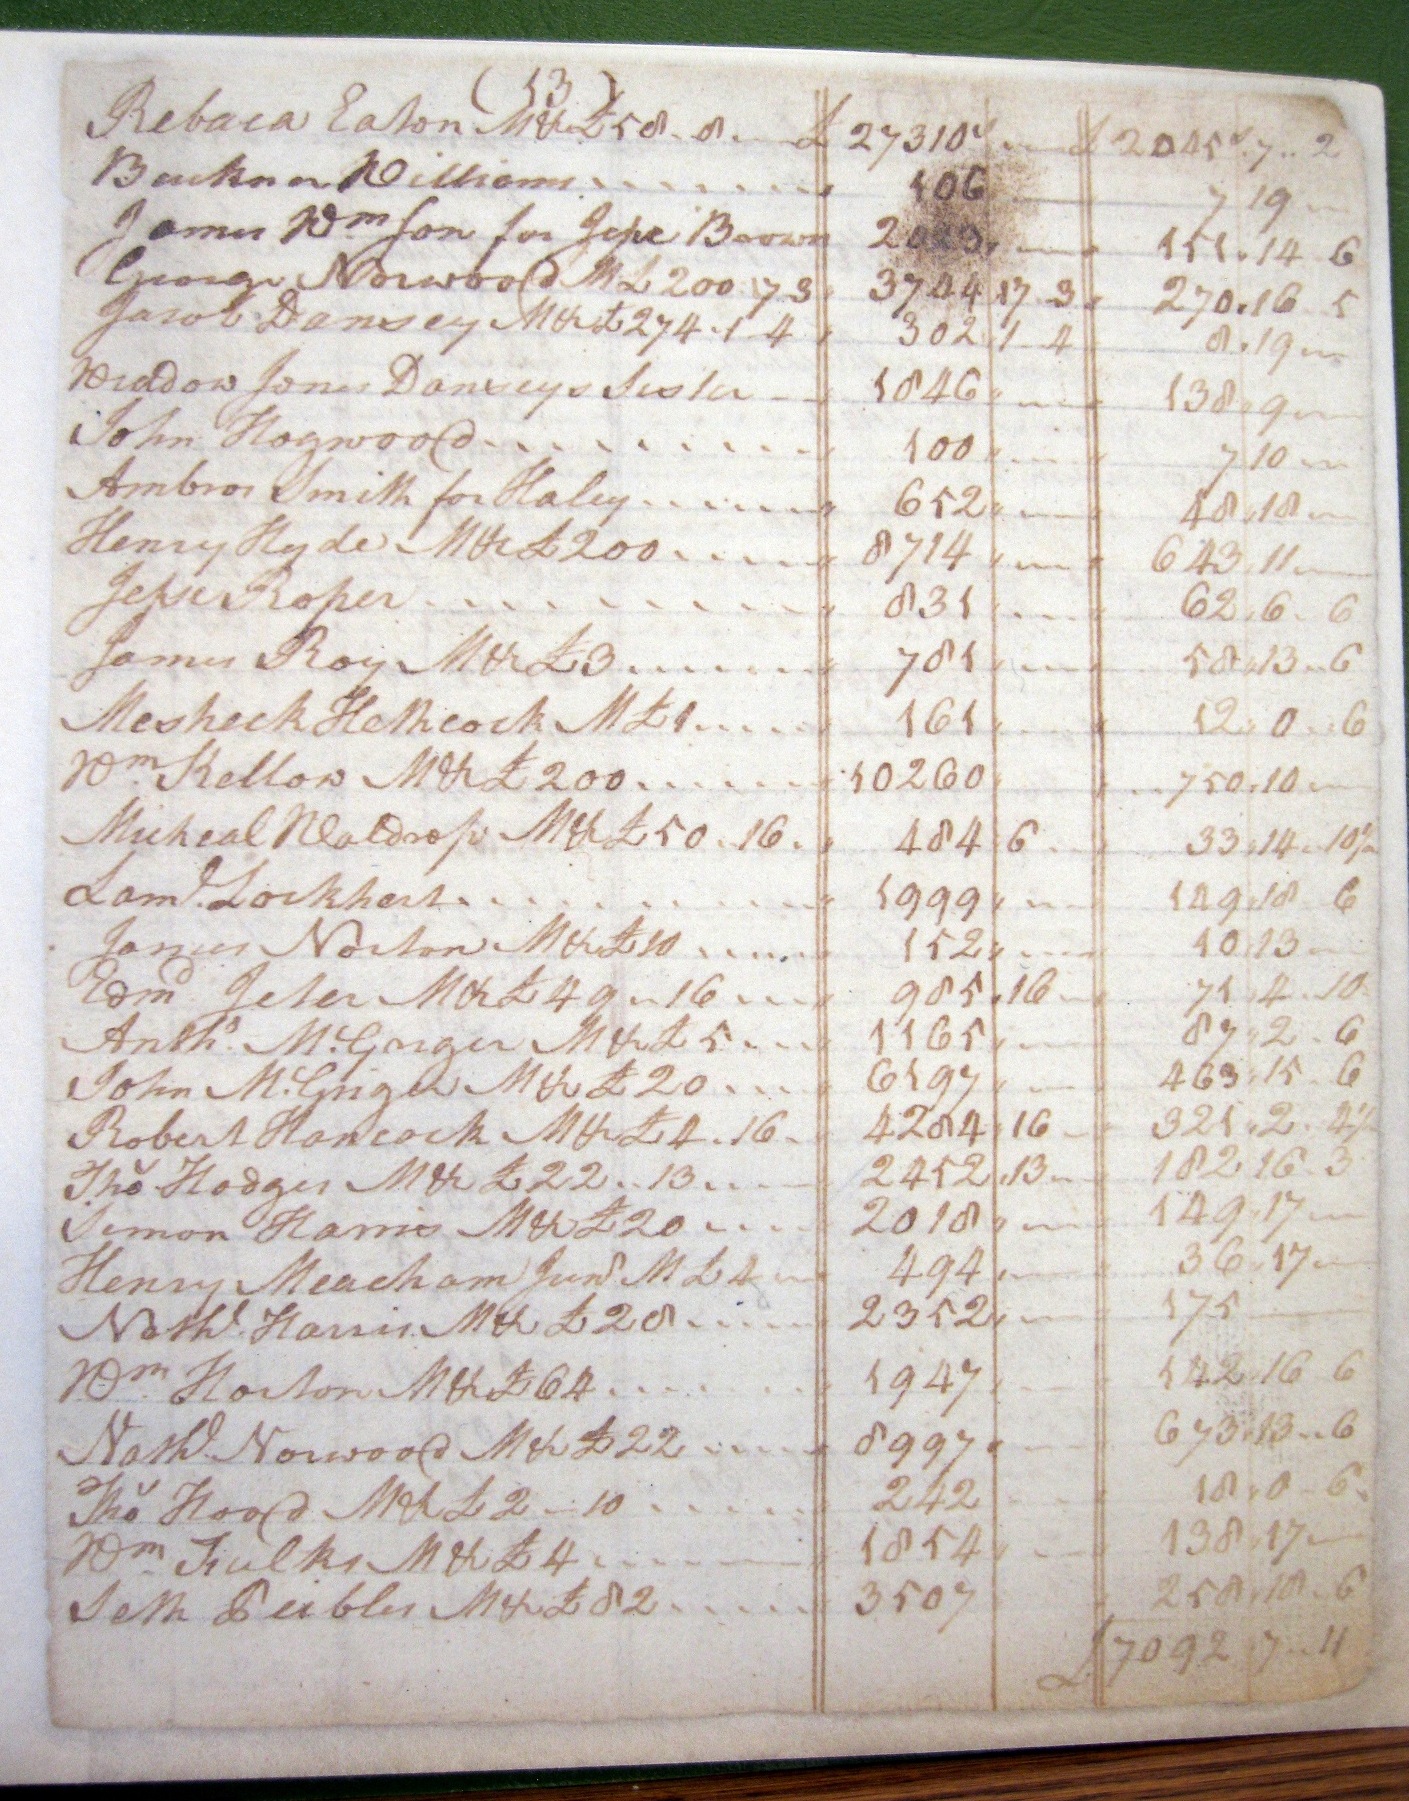 (13)
Rebaca Eaton M&c £58..8 £ 27310 £ 2045..7..2
Williams 106 7 19
James Wm son for Jesse Brown 151.14 6
George Norwood M £200 17 3 3744 17 3 270.16 5
Jacob Dansey M&c £274.1 4 302 1 4 8.19
Widdow Jones Danseys Sister 1846 138.9
John Hogwood 100 7 10
Ambros Smith for Haley 652 48.18
Henry Hyde M&c £200 8714 643.11
Jesse Roper 831 62.6.6
James Roy M&c £3 781 58.13..6
Mesheck Hethcock M £1 161 12.0..6
Wm Kellow M&c £200 10260 750.10
Micheal Waldrop M&c £50..16 484 6 33.14..10½
Lamd. Lockhert 1999 149.18 6
James Norton M&c £10 152 10.13
Edmd Jeter M&c £49..16 985.16 71.4..10
Antho. McGreger M&c £5 1165 87.2.6
John McGriger M&c £20 6197 463.15 6
Robert Hancock M&c £4.16 4284 16 321.2.4½
Tho Hodges M&c £22..13 2452.13 182 16 3
Simon Harris M&c £20 2018 149.17
Henry Meacham Junr M £4 494 36.17
Nathl. Harris M&c £28 2352 175
Wm Horton M&c £64 1947 142.16 6
Nathl. Norwood M&c £22 8997 673.13..6
Tho Hood M&c £2..10 242 18.0.6
Wm Fulks M&c £4 1854 138.17
Seth Peibles M&c £82 3507 258.18.6
£7092 7..11